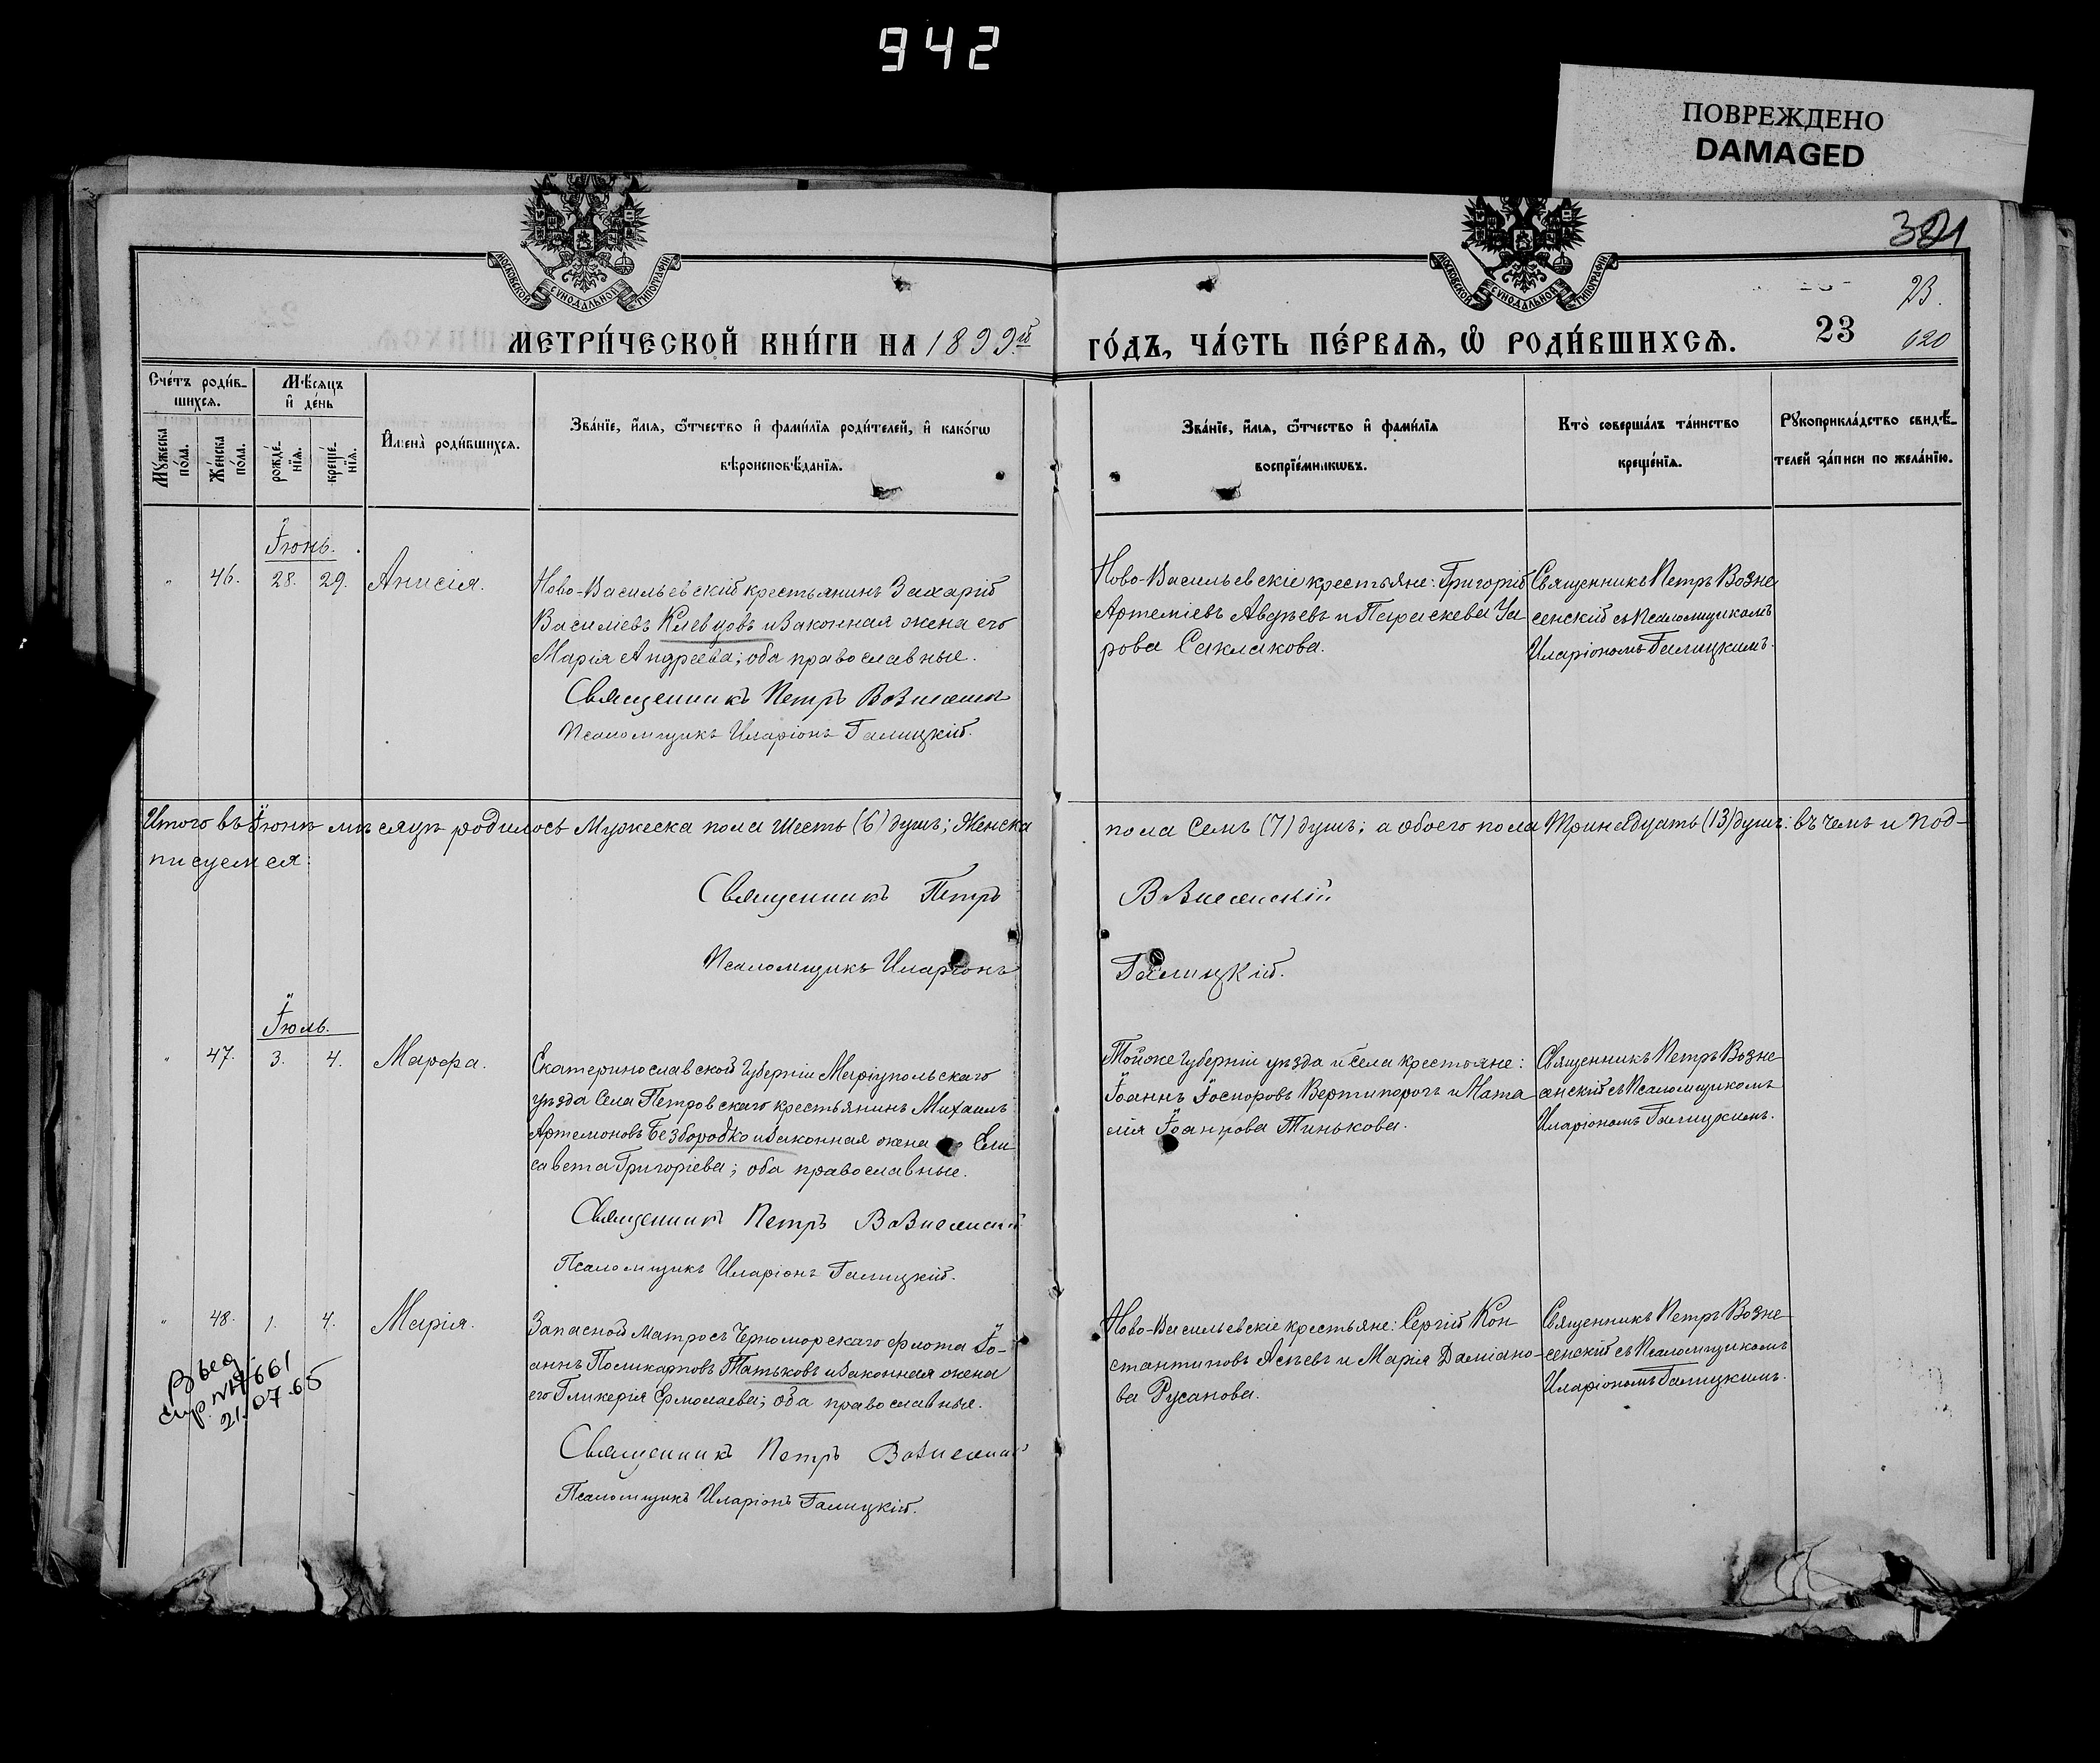 942
ПОВРЕЖДЕНО
DAMAGED
МОСКОВСКОЙ СѴНОДАЛЬНОЙ ТИПОГРАФІИ
МОСКОВСКОЙ СѴНОДАЛЬНОЙ ТИПОГРАФІИ
23.
МЕТРИ́ЧЕСКОЙ КНИ́ГИ НА 1899й
ГО́ДЪ, ЧА́СТЬ ПЕ́РВАѦ, Ѡ҆ РОДИ́ВШИХСѦ.
23
620
Сче́тъ роди́в-
шихсѧ.
Мѣ́сѧцъ
и҆ де́нь
Мꙋ́жеска
по́ла.
Же́нска
по́ла.
рожде́-
нїѧ.
креще́-
нїѧ.
И҆мена̀ роди́вшихсѧ.
Зва́нїе, и҆́мѧ, ѻ҆́тчество и҆ фами́лїѧ роди́телей, и҆ како́гѡ
вѣроисповѣ́данїѧ.
Зва́нїе, и҆́мѧ, ѻ҆́тчество и҆ фами́лїѧ
воспрїе́мникѡвъ.
Кто̀ соверша́лъ та́инство
креще́нїѧ.
Рꙋкоприкла́дство свидѣ́-
телей за́писи по жела́нїю.
Іюнь.
" 46. 28. 29. Анисія.
Ново-Васильевскій крестьянинъ Захарій
Василіевъ Клевцовъ и законная жена его
Марія Андреева; оба православные.
Священникъ Петръ Вознесенскій
Псаломщикъ Иларіонъ Галицкій.
Ново-Васильевскіе крестьяне: Григорій
Артеміевъ Авдѣевъ и Параскева
рова Саклакова.
Священникъ Петръ Возне
сенскій съ Псаломщикомъ
Иларіономъ Галицкимъ.
Итого въ Іюнѣ мѣсяцѣ родилось Мужеска пола Шесть (6) душъ; Женска
пола Семь (7) душъ; а обоего пола Тринадцать (13) душъ: въ чемъ и под-
писуемся:
Священникъ Петръ
Вознесенскій
Псаломщикъ Иларіонъ
Галицкій.
Іюль.
" 47. 3. 4. Марѳа.
Екатеринославской Губерніи Маріупольскаго
уѣзда Села Петровскаго крестьянинъ Михаилъ
Артемоновъ Безбородко и законная жена его Ели
савета Григоріева; оба православные.
Священникъ Петръ Вознесенскій
Псаломщикъ Иларіонъ Галицкій.
Тойже Губерніи уѣзда и села крестьяне:
Іоаннъ Вертипорогъ и Ната
лія Іоаннова Тинькова.
Священникъ Петръ Возне
сенскій съ Псаломщикомъ
Иларіономъ Галицкимъ.
" 48. 1. 4. Марія.
Запасной Матросъ Черноморскаго флота Іо-
аннъ Поликарповъ Татьковъ и законная жена
его Гликерія Ермолаева; оба православные.
Священникъ Петръ Вознесенскій
Псаломщикъ Иларіонъ Галицкій.
Ново-Васильевскіе крестьяне: Сергій Кон
стантиновъ Асѣевъ и Марія Даміано-
ва Русанова.
Священникъ Петръ Возне
сенскій съ Псаломщикомъ
Иларіономъ Галицкимъ.
21.07.65